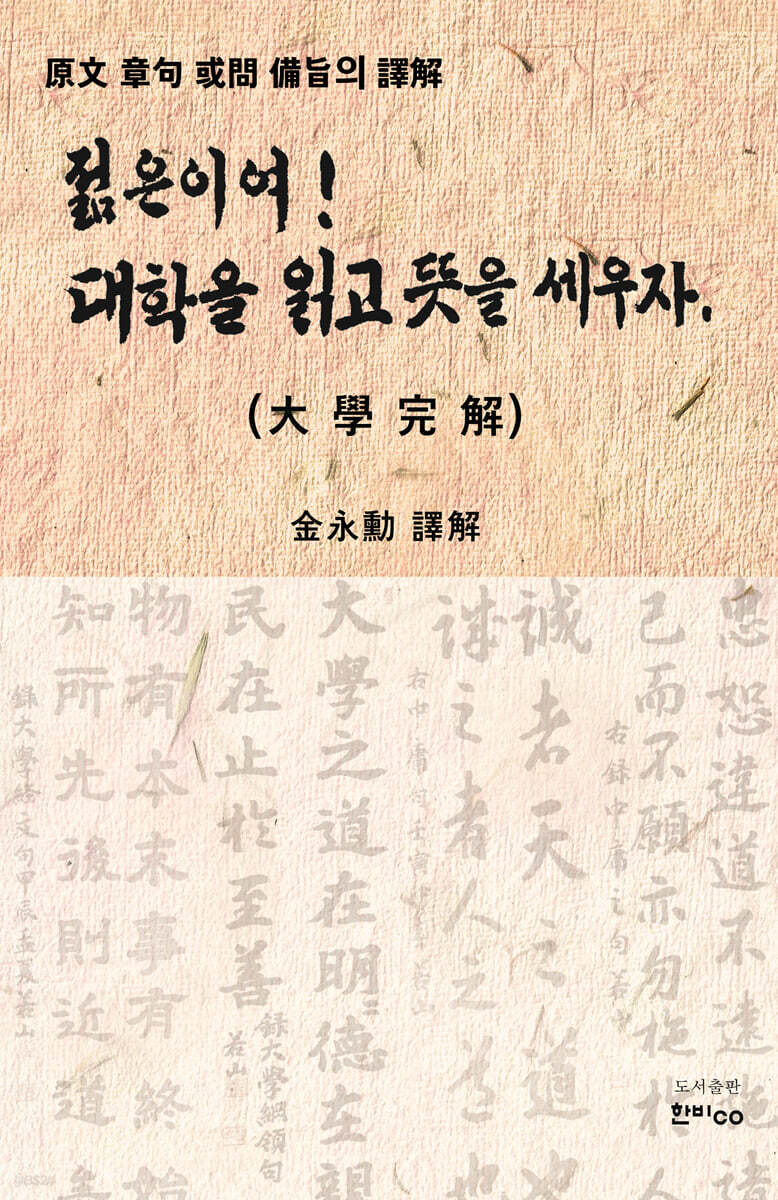 原文 章句 或問 備旨의 譯解
젊은이여!
대학을 읽고 뜻을 세우자.
(大學完解)
金永勳 譯解
忠恕違道不遠施諸
己而不願亦勿施於人
右録中庸之句若山
誠者天之道也
誠之者人之道也
右中庸句壬寅 若山
大學之道在明〻德在親
民在止於至善
録大學綱領句
若山
物有本末事有終始
知所先後則近道矣
録大學經文句甲辰孟夏若山
도서출판
한비co
YES24